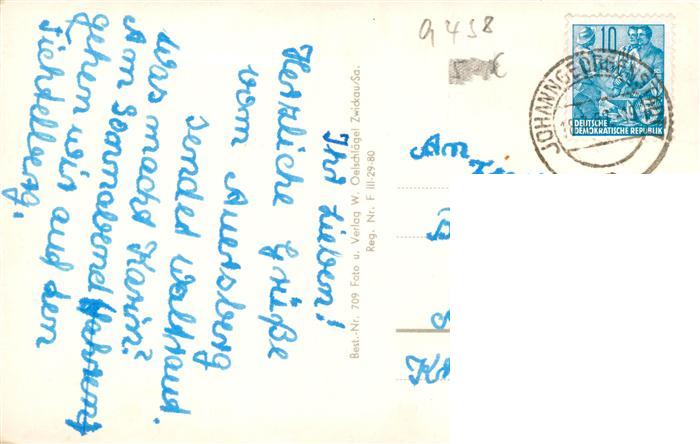 Ihr Lieben!
Herzliche Grüße
vom Auersberg
sendet Waltraud.
Was macht Karin?
Am Sonnabend
gehen wir auf den
Fichtelberg.
Best.-Nr. 709 Foto u. Verlag W. Oelschlägel Zwickau/Sa.
Reg. Nr. F III-29-80
10
DEUTSCHE
DEMOKRATISCHE REPUBLIK
JOHANNGEORGENSTADT
An